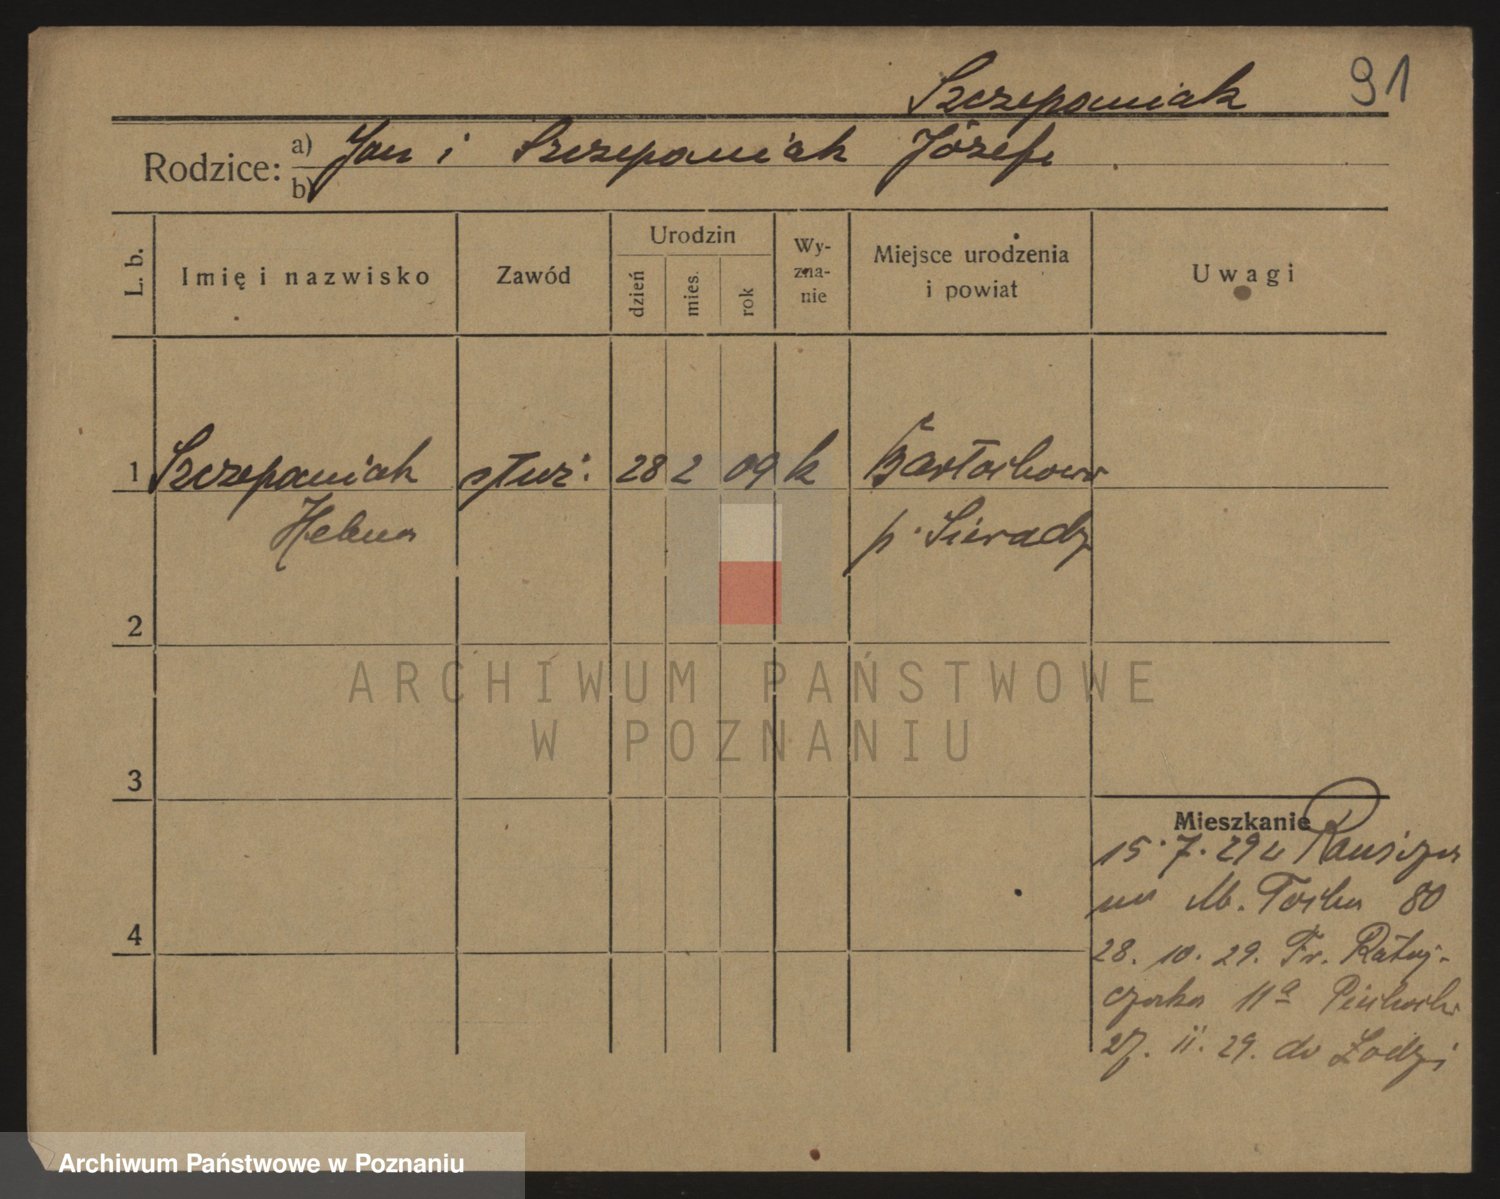 Szczepaniak 91
Rodzice: a) Jan i Szczepaniak Józefa
b)
L. b. Imię i nazwisko Zawód Urodzin dzień mies. rok Wyznanie Miejsce urodzenia i powiat Uwagi
1 Szczepaniak służ. 28 2 09 k Bartochow
Helena p. Sieradz
2
ARCHIWUM PAŃSTWOWE
W POZNANIU
3
Mieszkanie
15. 7. 29
na M. Focha 80
4
28. 10. 29. Fr. Rataj-
czaka 11a
27. 11. 29. do Łodzi
Archiwum Państwowe w Poznaniu